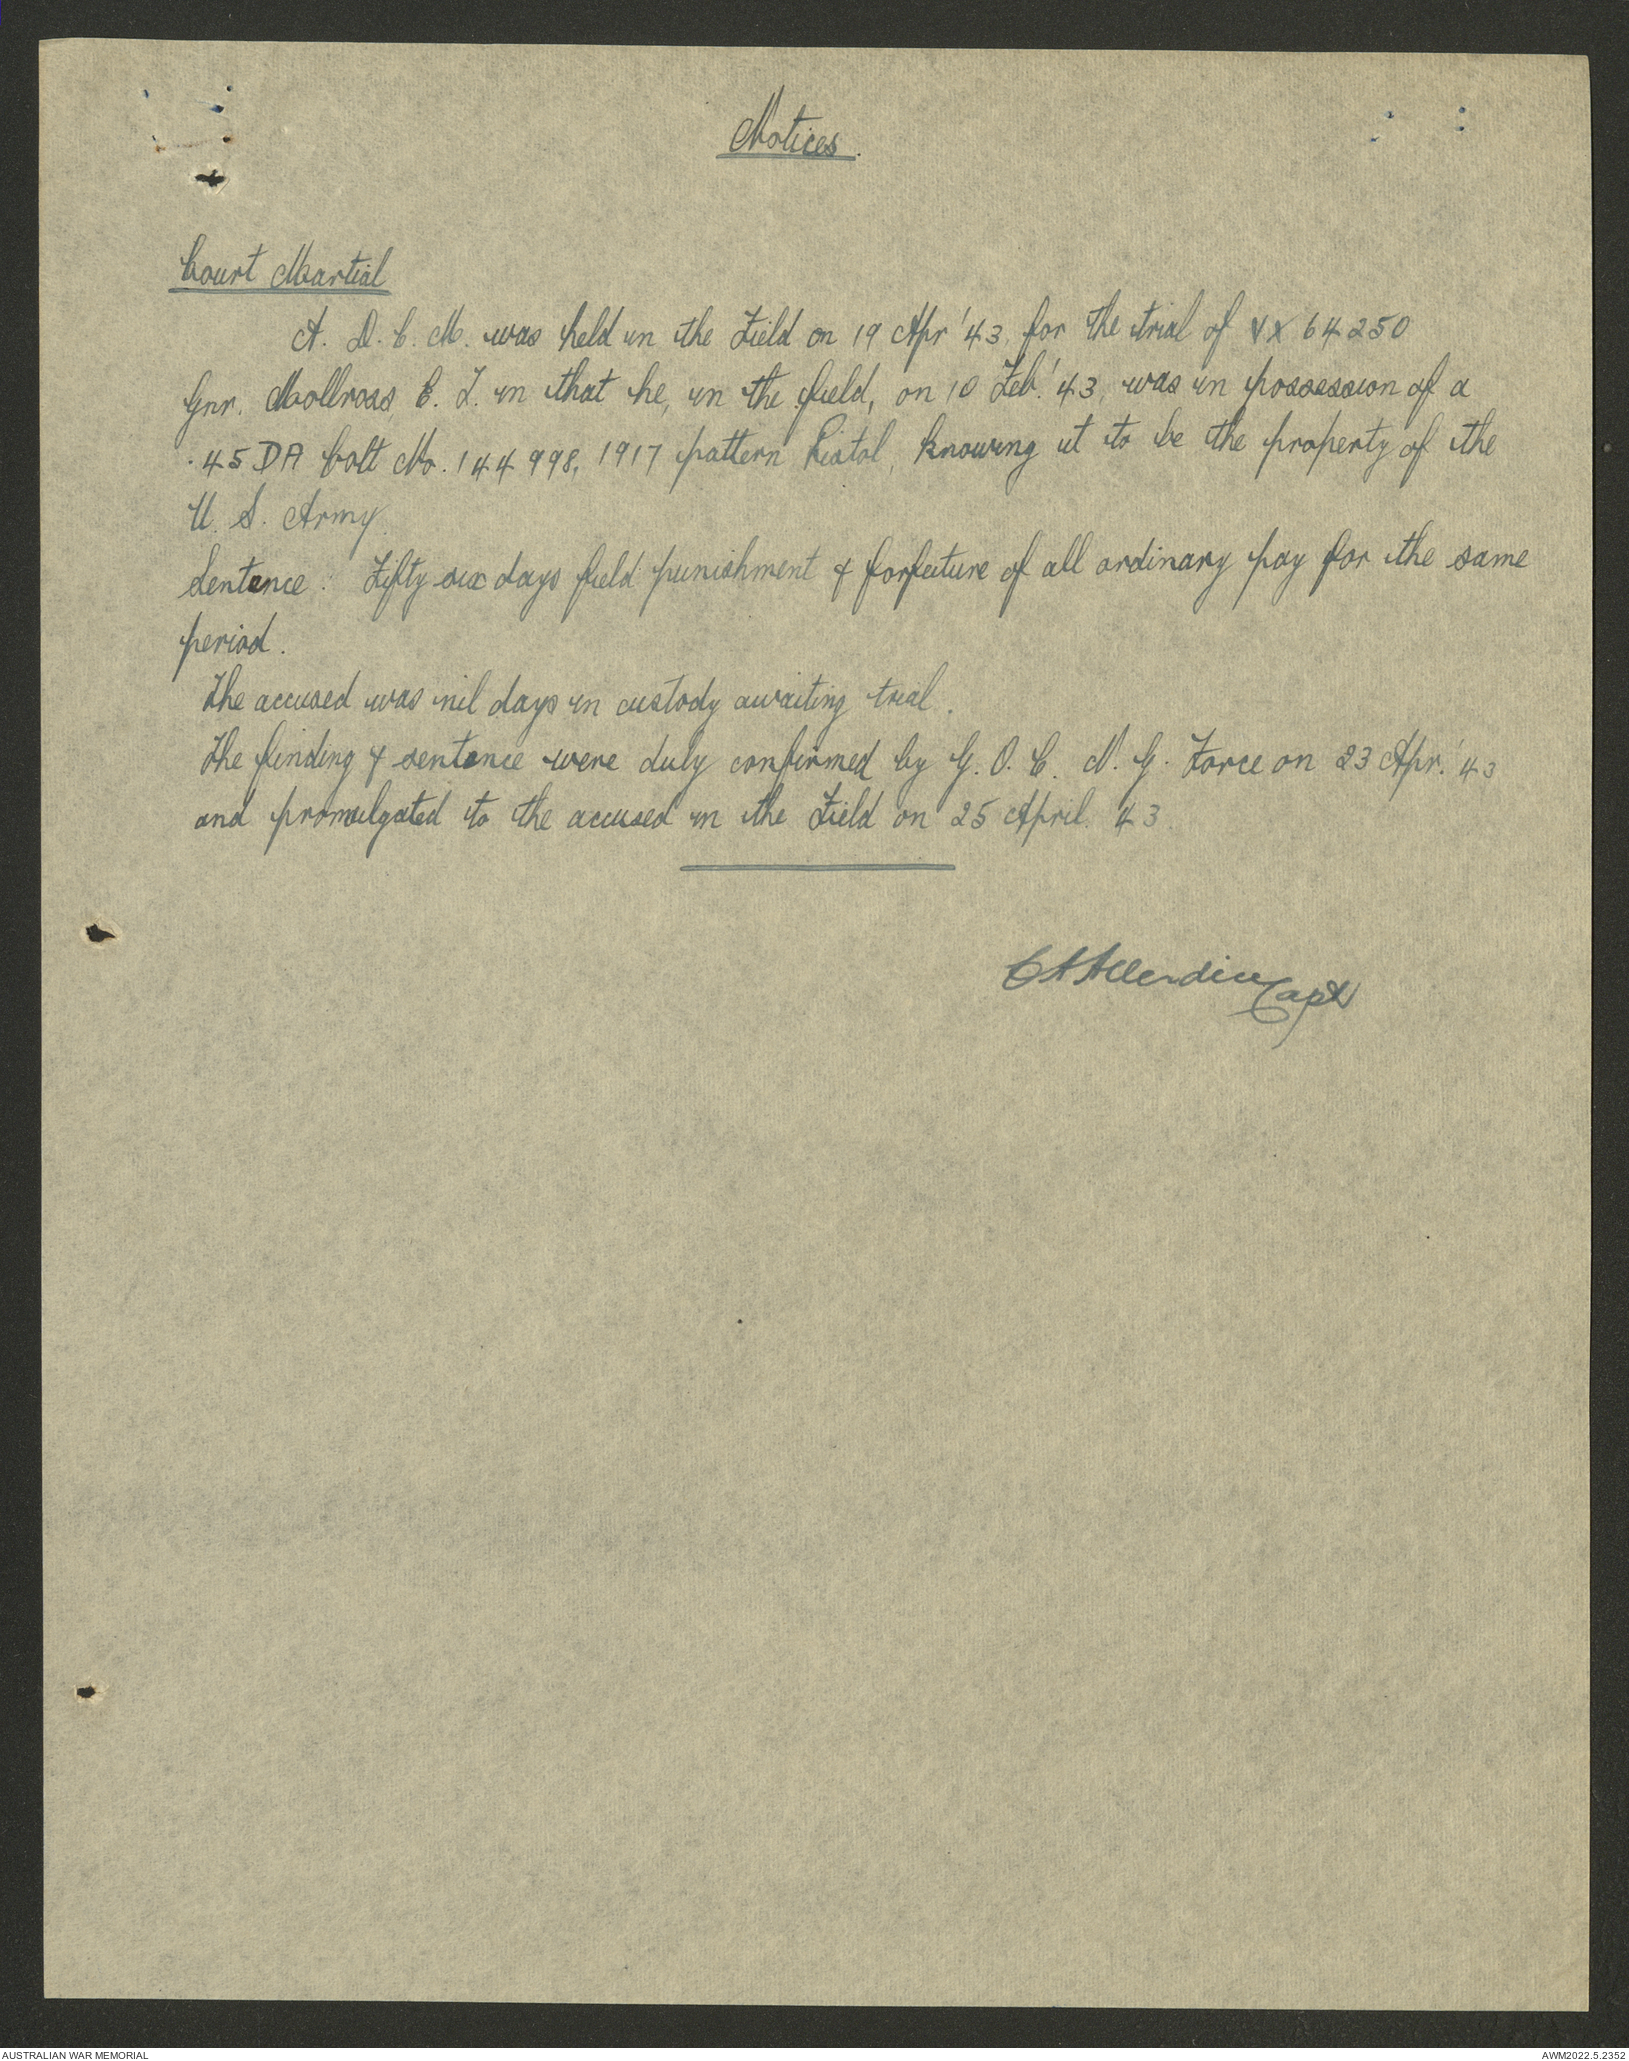 Notices.
Court Martial
A. D. C. M. was held in the Field on 19 Apr '43, for the trial of VX 64250
Gnr. Mollross, E. L. in that he, in the field, on 10 Feb.' 43, was in possession of a
.45 DA Colt No. 144998, 1917 pattern Pistol, knowing it to be the property of the
U. S. Army.
Sentence : Fifty six days field punishment & forfeiture of all ordinary pay for the same
period.
The accused was nil days in custody awaiting trial.
The finding & sentence were duly confirmed by G. O. C. N. G. Force on 23 Apr.' 43
and promulgated to the accused in the Field on 25 April. 43.
Capt
AUSTRALIAN WAR MEMORIAL
AWM2022.5.2352